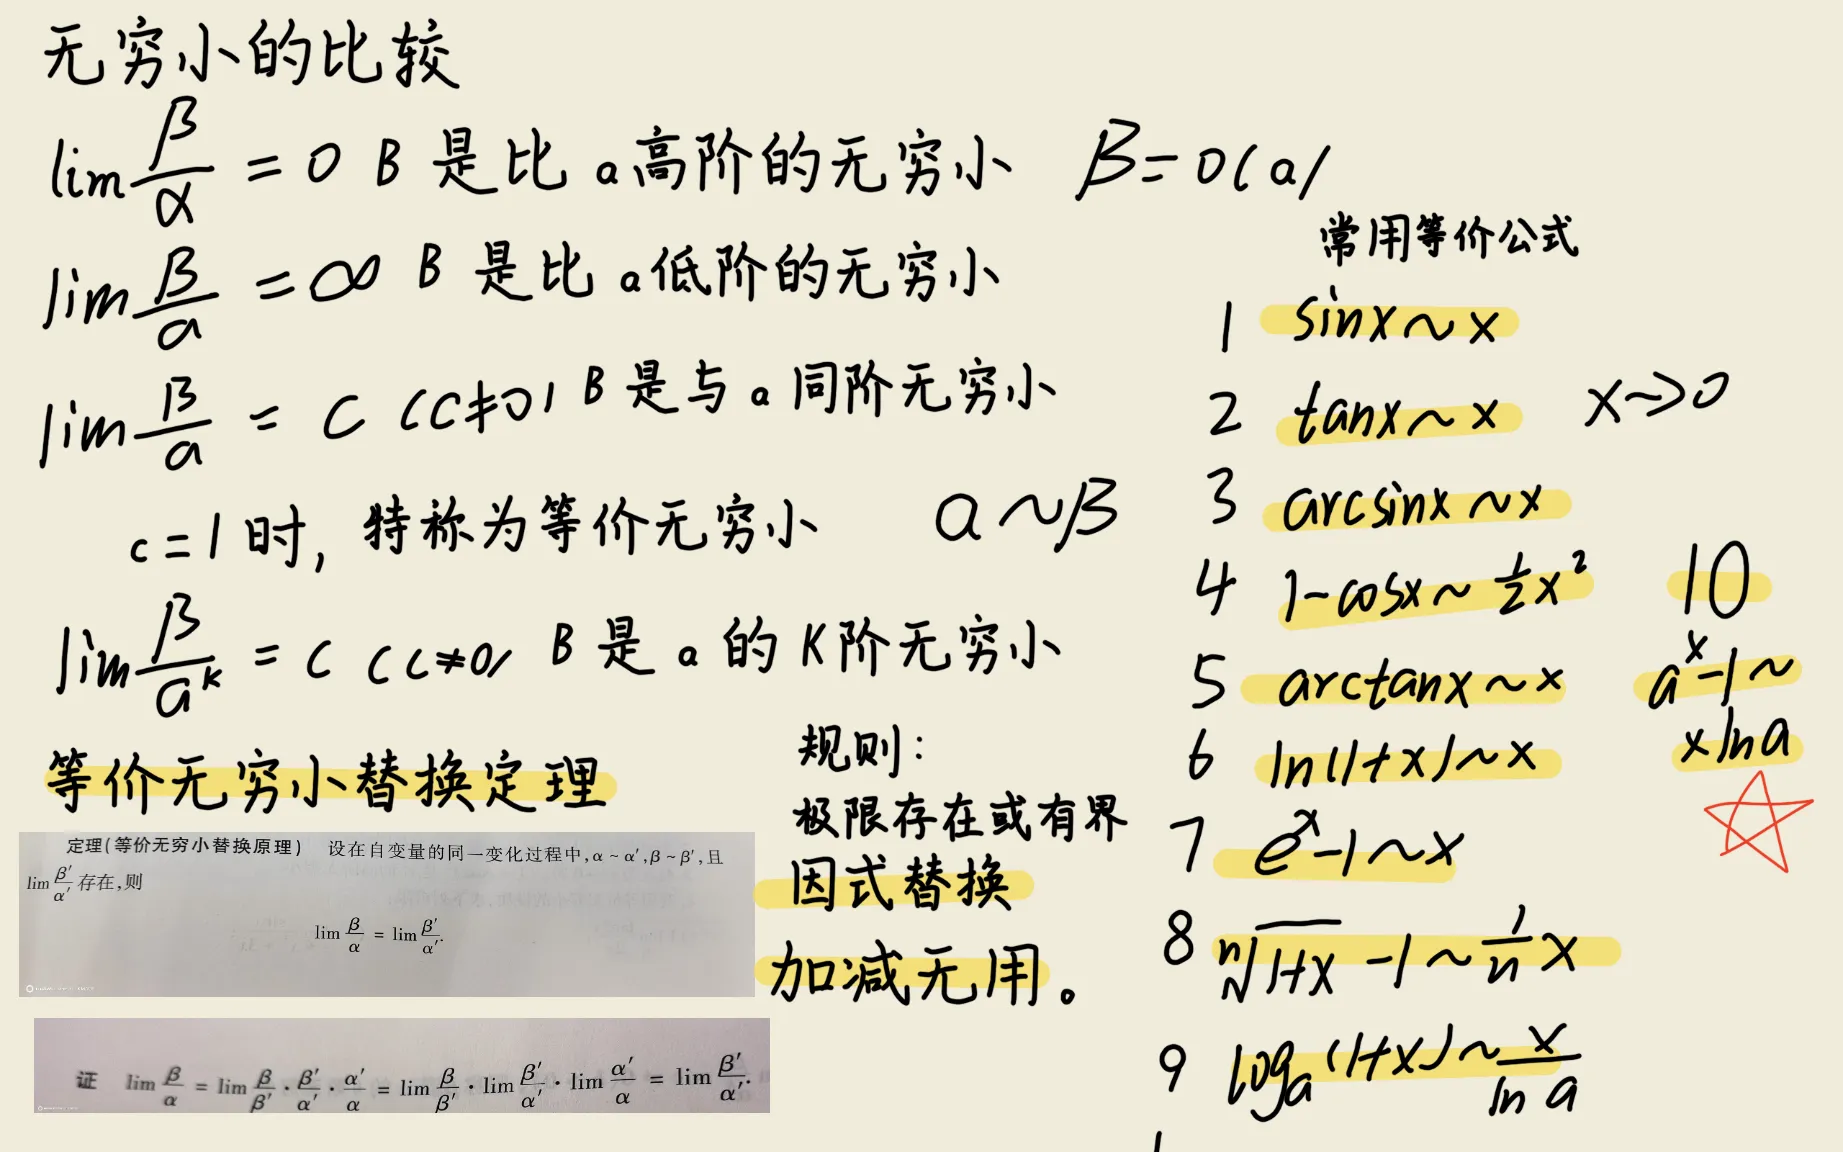 无穷小的比较
lim β/α = 0 B 是比 a 高阶的无穷小 β = 0(a)
lim β/a = ∞ B 是比 a 低阶的无穷小
lim β/a = C (C≠0) B 是与 a 同阶无穷小
c = 1 时, 特称为等价无穷小 a ~ β
lim β/a^k = C (C≠0) B 是 a 的 K 阶无穷小
等价无穷小替换定理
定理(等价无穷小替换原理) 设在自变量的同一变化过程中,α ~ α′,β ~ β′,且
lim β′/α′ 存在,则
lim β/α = lim β′/α′.
证 lim β/α = lim β/β′ · β′/α′ · α′/α = lim β/β′ · lim β′/α′ · lim α′/α = lim β′/α′.
规则:
极限存在或有界
因式替换
加减无用。
常用等价公式
1 sinx ~ x
2 tanx ~ x x→0
3 arcsinx ~ x
4 1-cosx ~ 1/2 x²
5 arctanx ~ x
6 ln(1+x) ~ x
7 e^x-1 ~ x
8 ⁿ√1+x -1 ~ 1/n x
9 log_a(1+x) ~ x/ln a
10
a^x-1 ~
x ln a